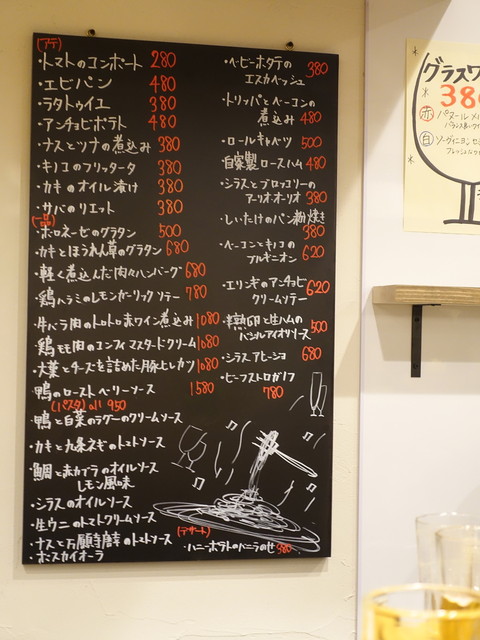 (アテ)
・トマトのコンポート 280
・エビパン 480
・ラタトゥイエ 380
・アンチョビポテト 480
・ナスとツナの煮込み 380
・キノコのフリッタータ 380
・カキのオイル漬け 380
・サバのリエット 380
(一品)
・ボロネーゼのグラタン 500
・カキとほうれん草のグラタン 680
・軽く煮込んだ肉々ハンバーグ 680
・鶏ハラミのレモンガーリックソテー 780
・牛バラ肉のトロトロ赤ワイン煮込み 1080
・鶏モモ肉のコンフィマスタードクリーム 1080
・大葉とチーズを詰めた豚ヒレカツ 1080
・鴨のロースト ベリーソース 1580
(パスタ) all 950
・鴨と白菜のラグーのクリームソース
・カキと九条ネギのトマトソース
・鯛と赤カブラのオイルソース
レモン風味
・シラスのオイルソース
・生ウニのトマトクリームソース
・ナスと万願寺唐辛のトマトソース
・ボスカイオーラ
・ベービーホタテの
エスカベッシュ 380
・トリッパとベーコンの
煮込み 480
・ロールキャベツ 500
・自家製ロースハム 480
・シラスとブロッコリーの
アーリオ・オーリオ 380
・しいたけのパン粉焼き
380
・ベーコンとキノコの
アルギニオン 620
・エリンギのアンチョビ
クリームソテー 620
・半熟卵と生ハムの
バジルアイオリソース 500
・シラスアヒージョ 680
・ビーフストロガノフ
780
(デザート)
・ハニーポテトのバニラのせ 380
グラスワ
38
赤 パヌール メ
白 ソーヴィニヨン セ